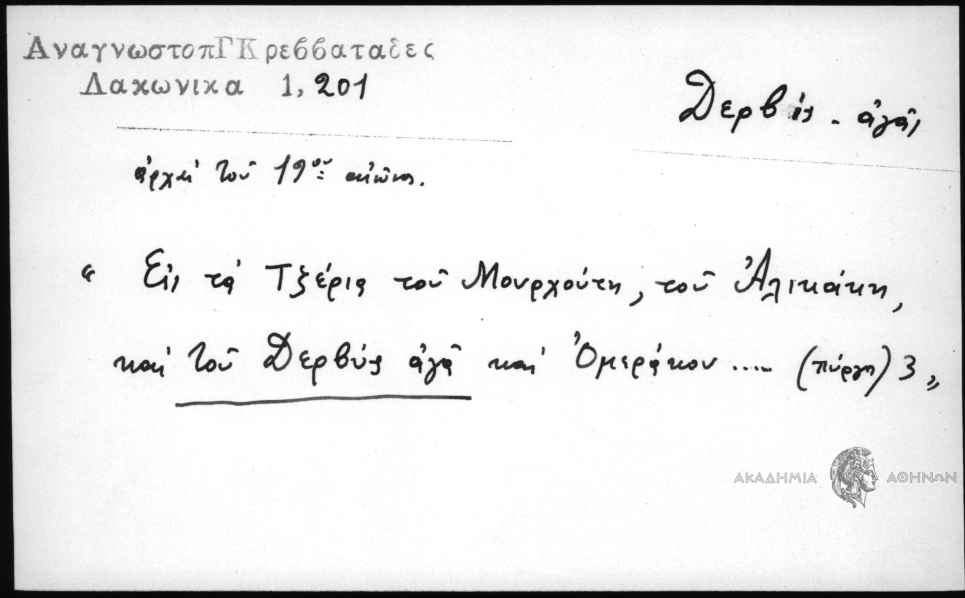 ΑναγνωστοπΓΚρεββαταδες
Λακωνικα 1, 201
Δερβίς - ἀγᾶς
ἀρχαί τοῦ 19ου αἰῶνος.
“ Εἰς τά Τζέρια τοῦ Μουρχούτη, τοῦ Ἀλικάκη,
καί τοῦ Δερβύς ἀγᾶ καί Ὀμεράκου ..... (πύργοι) 3 „
ΑΚΑΔΗΜΙΑ ΑΘΗΝΩΝ